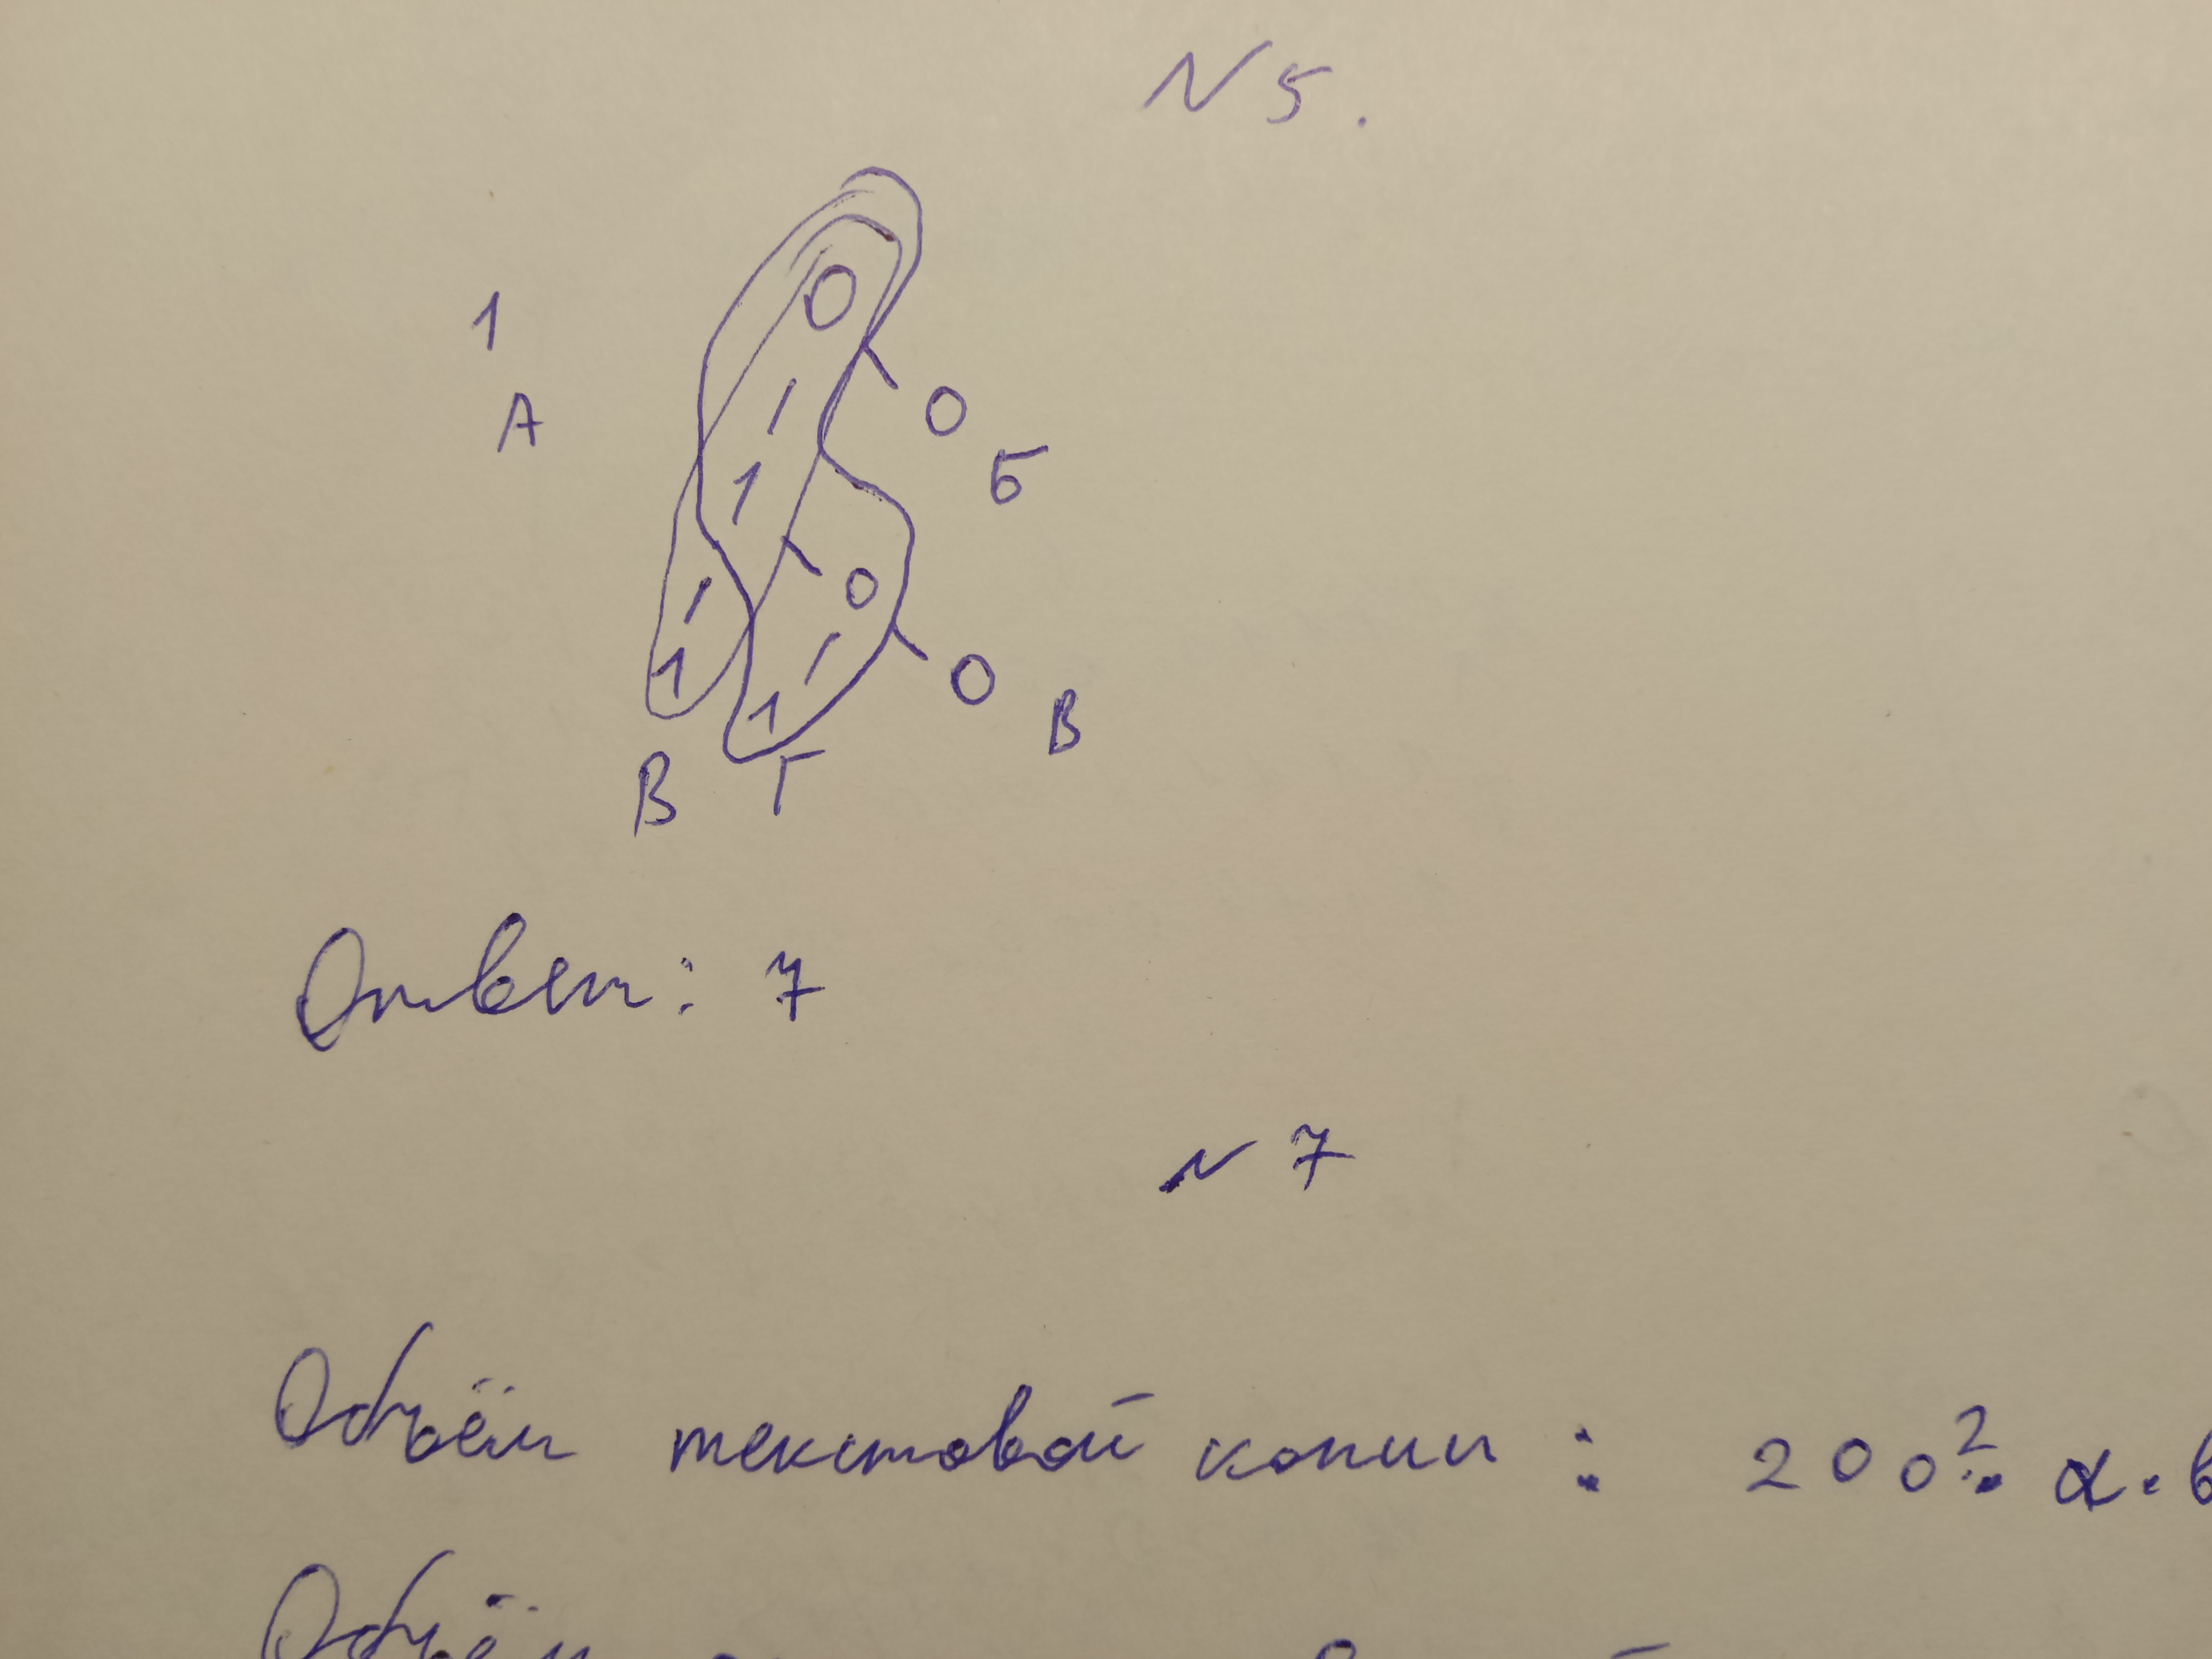 N 5.
0
1
0
А
1
Б
0
1
0
1
В
В
Г
Ответ: 7
N 7
Объём текстовой копии : 200². α.
Объём